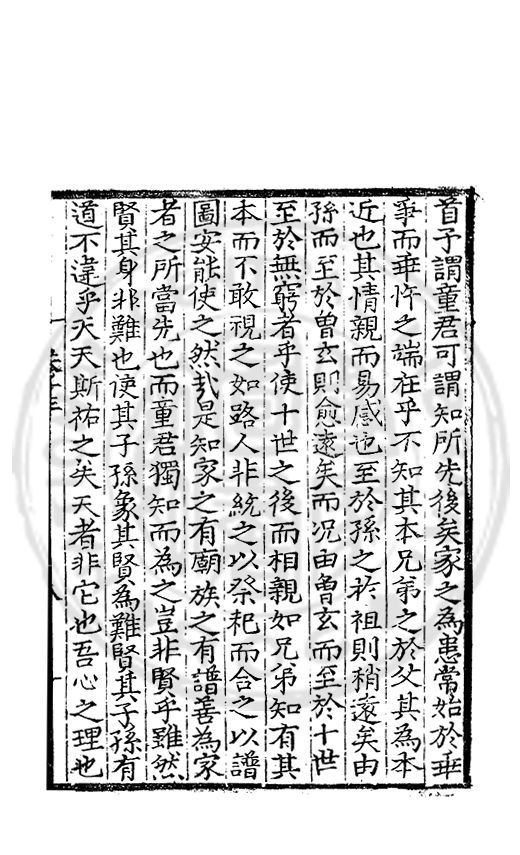 首予謂童君可謂知所先後矣家之為患常始於乖
爭而乖忤之端在乎不知其本兄弟之於父其為本
近也其情親而易感也至於孫之於祖則稍遠矣由
孫而至於曽玄則愈遠矣而况由曽玄而至於十世
至於無窮者乎使十世之後而相親如兄弟知有其
本而不敢視之如路人非統之以祭祀而合之以譜
圖安能使之然哉是知家之有廟族之有譜善為家
者之所當先也而童君獨知而為之豈非賢乎雖然
賢其身非難也使其子孫象其賢為難賢其子孫有
道不違乎天天斯祐之矣天者非它也吾心之理也